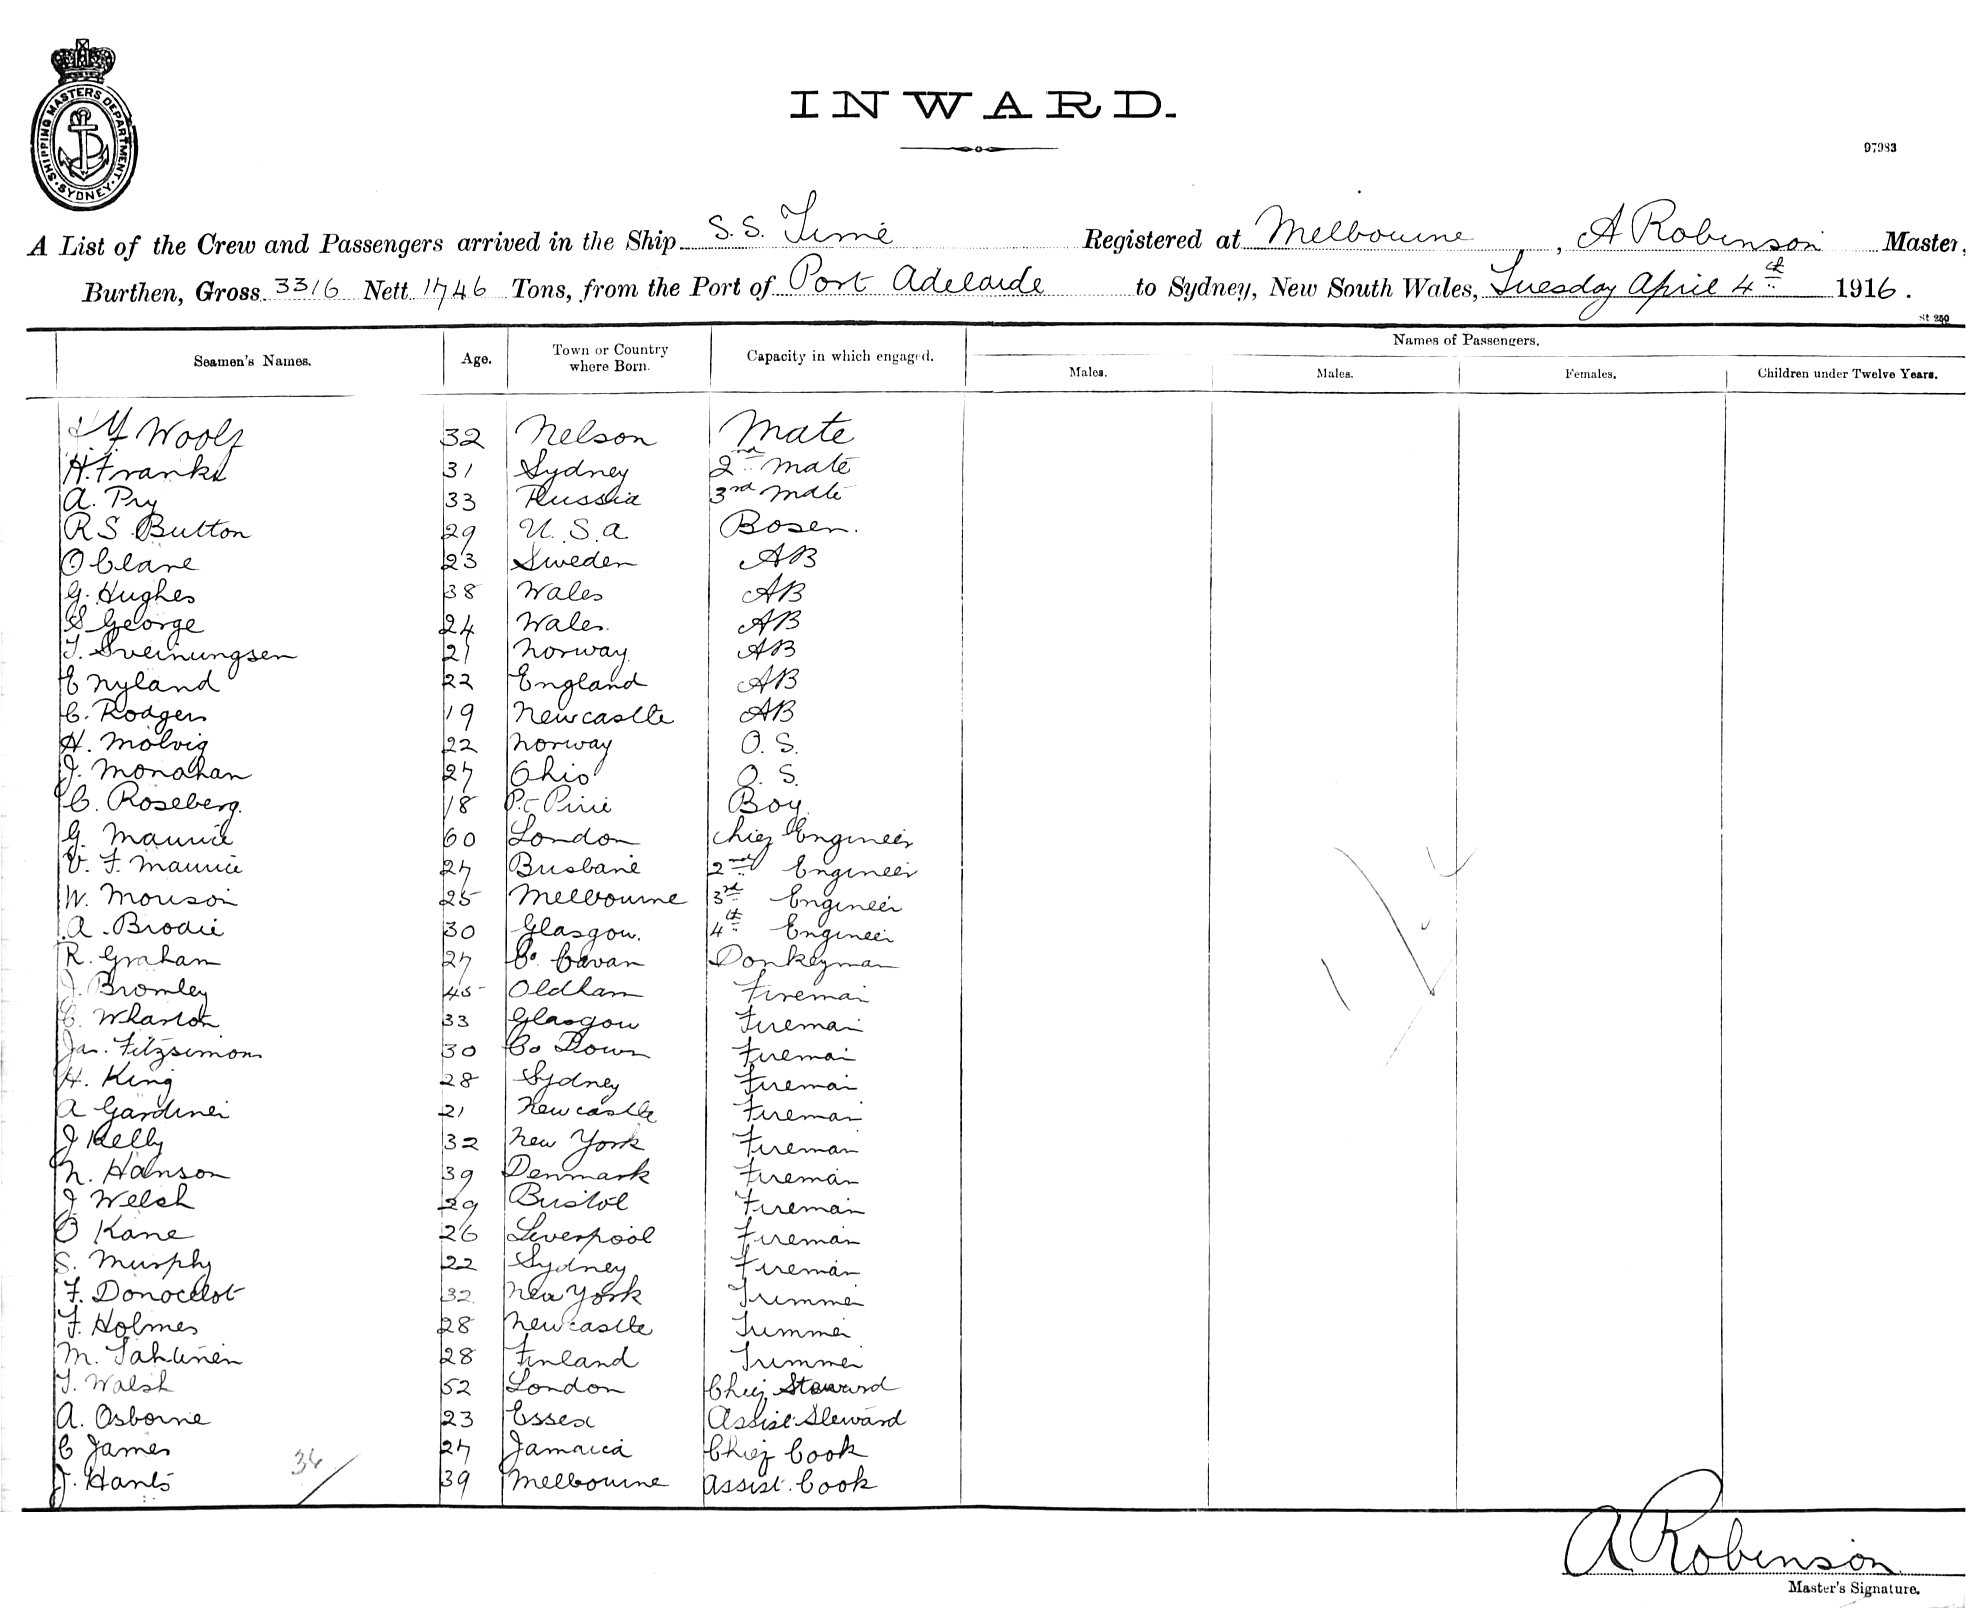 SHIPPING MASTERS DEPARTMENT
SYDNEY
INWARD.
97983
A List of the Crew and Passengers arrived in the Ship S.S. Time Registered at Melbourne, A Robinson Master,
Burthen, Gross 3316 Nett 1746 Tons, from the Port of Port Adelaide to Sydney, New South Wales, Tuesday April 4th 1916.
St 250
Seamen's Names. Age. Town or Country where Born. Capacity in which engaged. Names of Passengers.
Males. Males. Females. Children under Twelve Years.
Woolf 32 Nelson Mate
H. Franks 31 Sydney 2nd Mate
A. Pry 33 Russia 3rd Mate
R S Button 29 U.S.A. Bosen.
O Clane 23 Sweden AB
G. Hughes 38 Wales AB
S George 24 Wales. AB
T. Sveinungsen 21 Norway AB
E Nyland 22 England AB
C. Rodgers 19 Newcastle AB
H. Molvig 22 Norway O.S.
J. Monahan 27 Ohio O.S.
C. Roseberg. 18 Pt Pirie Boy.
G. Maurice 60 London Chief Engineer
V. F. Maurice 27 Brisbane 2nd Engineer
W. Morison 25 Melbourne 3rd Engineer
A. Brodie 30 Glasgow. 4th Engineer
R. Graham 27 Co. Cavan Donkeyman
J. Bromley 45 Oldham Fireman
C. Wharton 33 Glasgow Fireman
Jas. Fitzsimons 30 Co Down Fireman
H. King 28 Sydney Fireman
A Gardiner 21 Newcastle Fireman
J Kelly 32 New York Fireman
N. Hanson 39 Denmark Fireman
J Welsh 29 Bristol Fireman
O Kane 26 Liverpool Fireman
S. Murphy 22 Sydney Fireman
F. Donocelot 32 New York Trimmer
F. Holmes 28 Newcastle Trimmer
M. Tahlinen 28 Finland Trimmer
T. Walsh 52 London Chief Steward
A. Osborne 23 Essex Assist. Steward
C James 27 Jamaica Chief Cook
J. Hants 39 Melbourne Assist. Cook
36
A Robinson
Master's Signature.